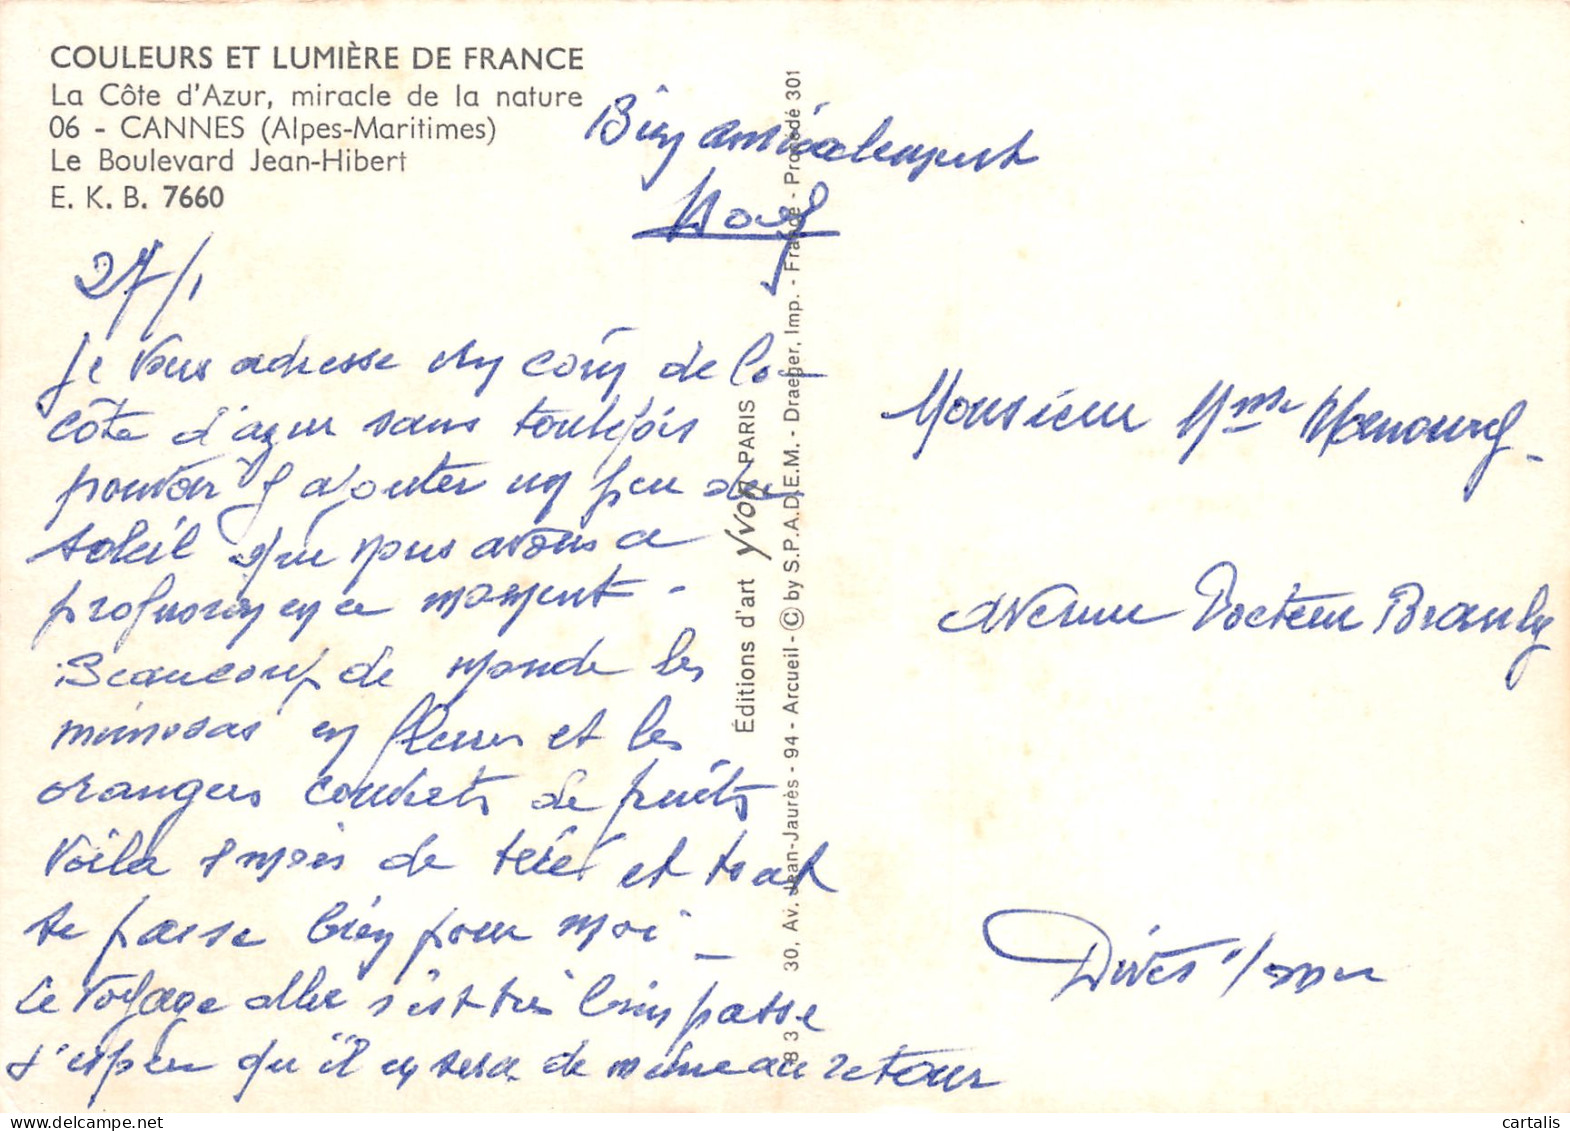 COULEURS ET LUMIÈRE DE FRANCE
La Côte d'Azur, miracle de la nature
06 - CANNES (Alpes-Maritimes)
Le Boulevard Jean-Hibert
E. K. B. 7660
Bien amicalement
27/1
Je vous adresse un coin de la
côte d'azur sans toutefois
pouvoir y ajouter un peu de
soleil que nous avons a
profusion en ce moment -
Beaucoup de monde les
mimosas en fleurs et les
orangers couverts de fruits
Voila 1 mois de tiré et tout
se passe bien pour moi -
Le voyage aller s'est très bien passe
J'espere qu'il en sera de même au retour
Éditions d'art YVON PARIS
30, Av. Jean-Jaurès - 94 - Arcueil - © by S.P.A.D.E.M. - Draeger, Imp. - France - Procédé 301
Monsieur Mme
avenue Docteur Branly
Dives s/mer
cartalis